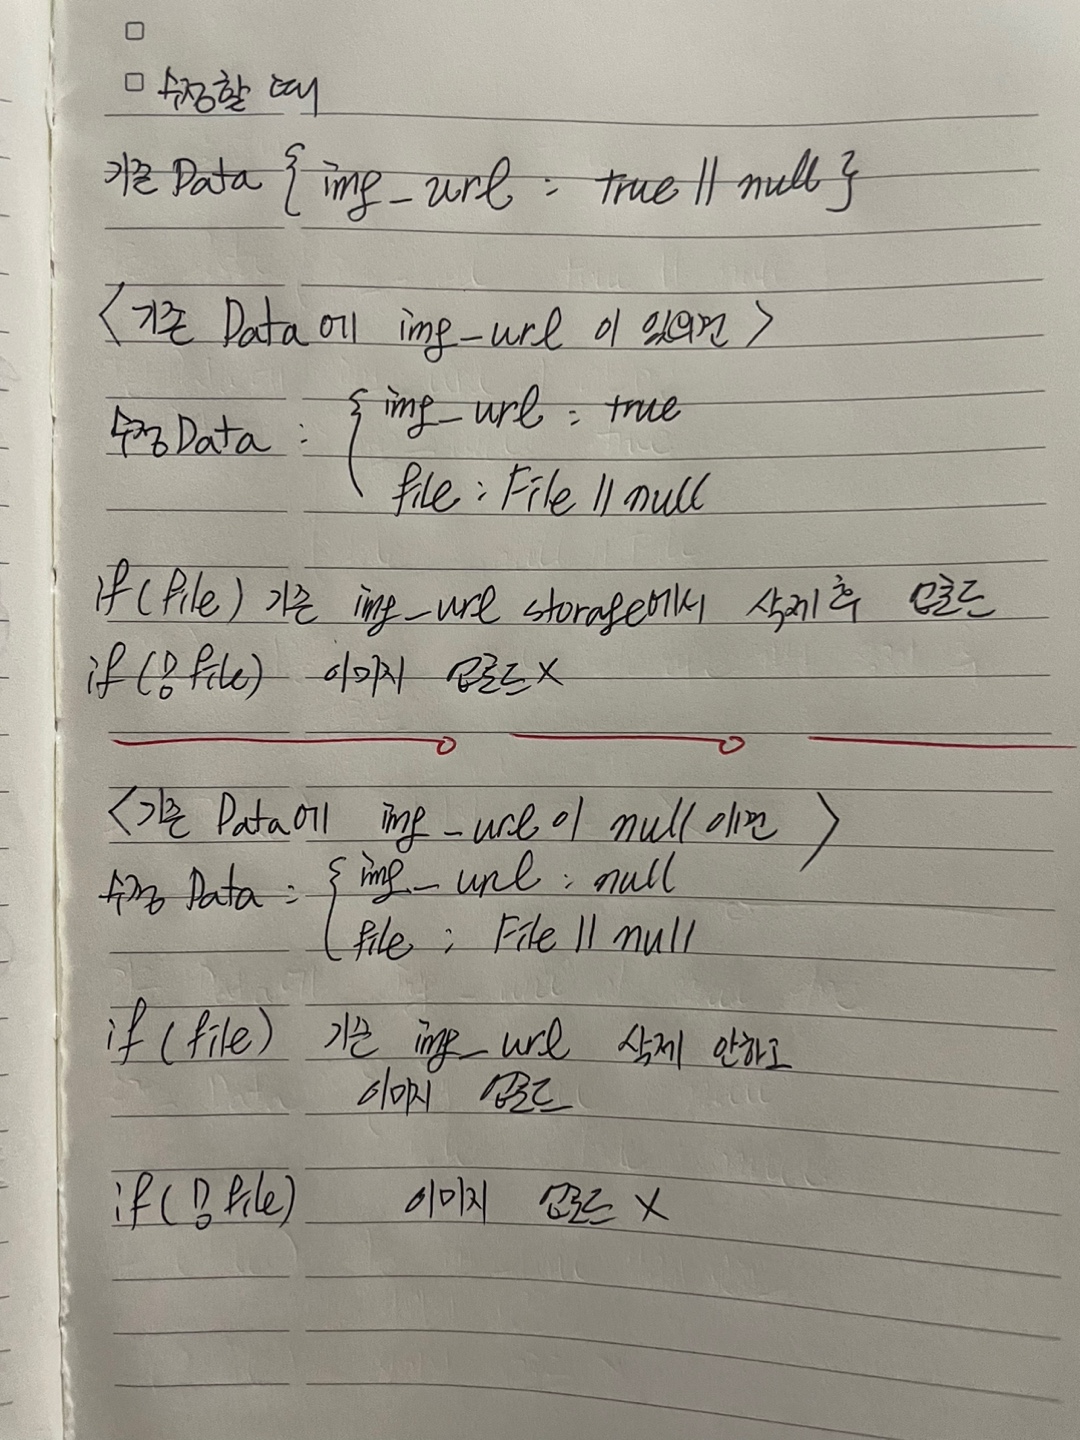 수정할 때
기존 Data { img_url : true || null }
<기존 Data에 img_url 이 있으면>
수정 Data : { img_url : true
file : File || null
if(file) 기존 img_url storage에서 삭제 후 업로드
if(!file) 이미지 업로드 X
<기존 Data에 img_url이 null 이면>
수정 Data : { img_url : null
file : File || null
if(file) 기존 img_url 삭제 안하고
이미지 업로드
if(!file) 이미지 업로드 X